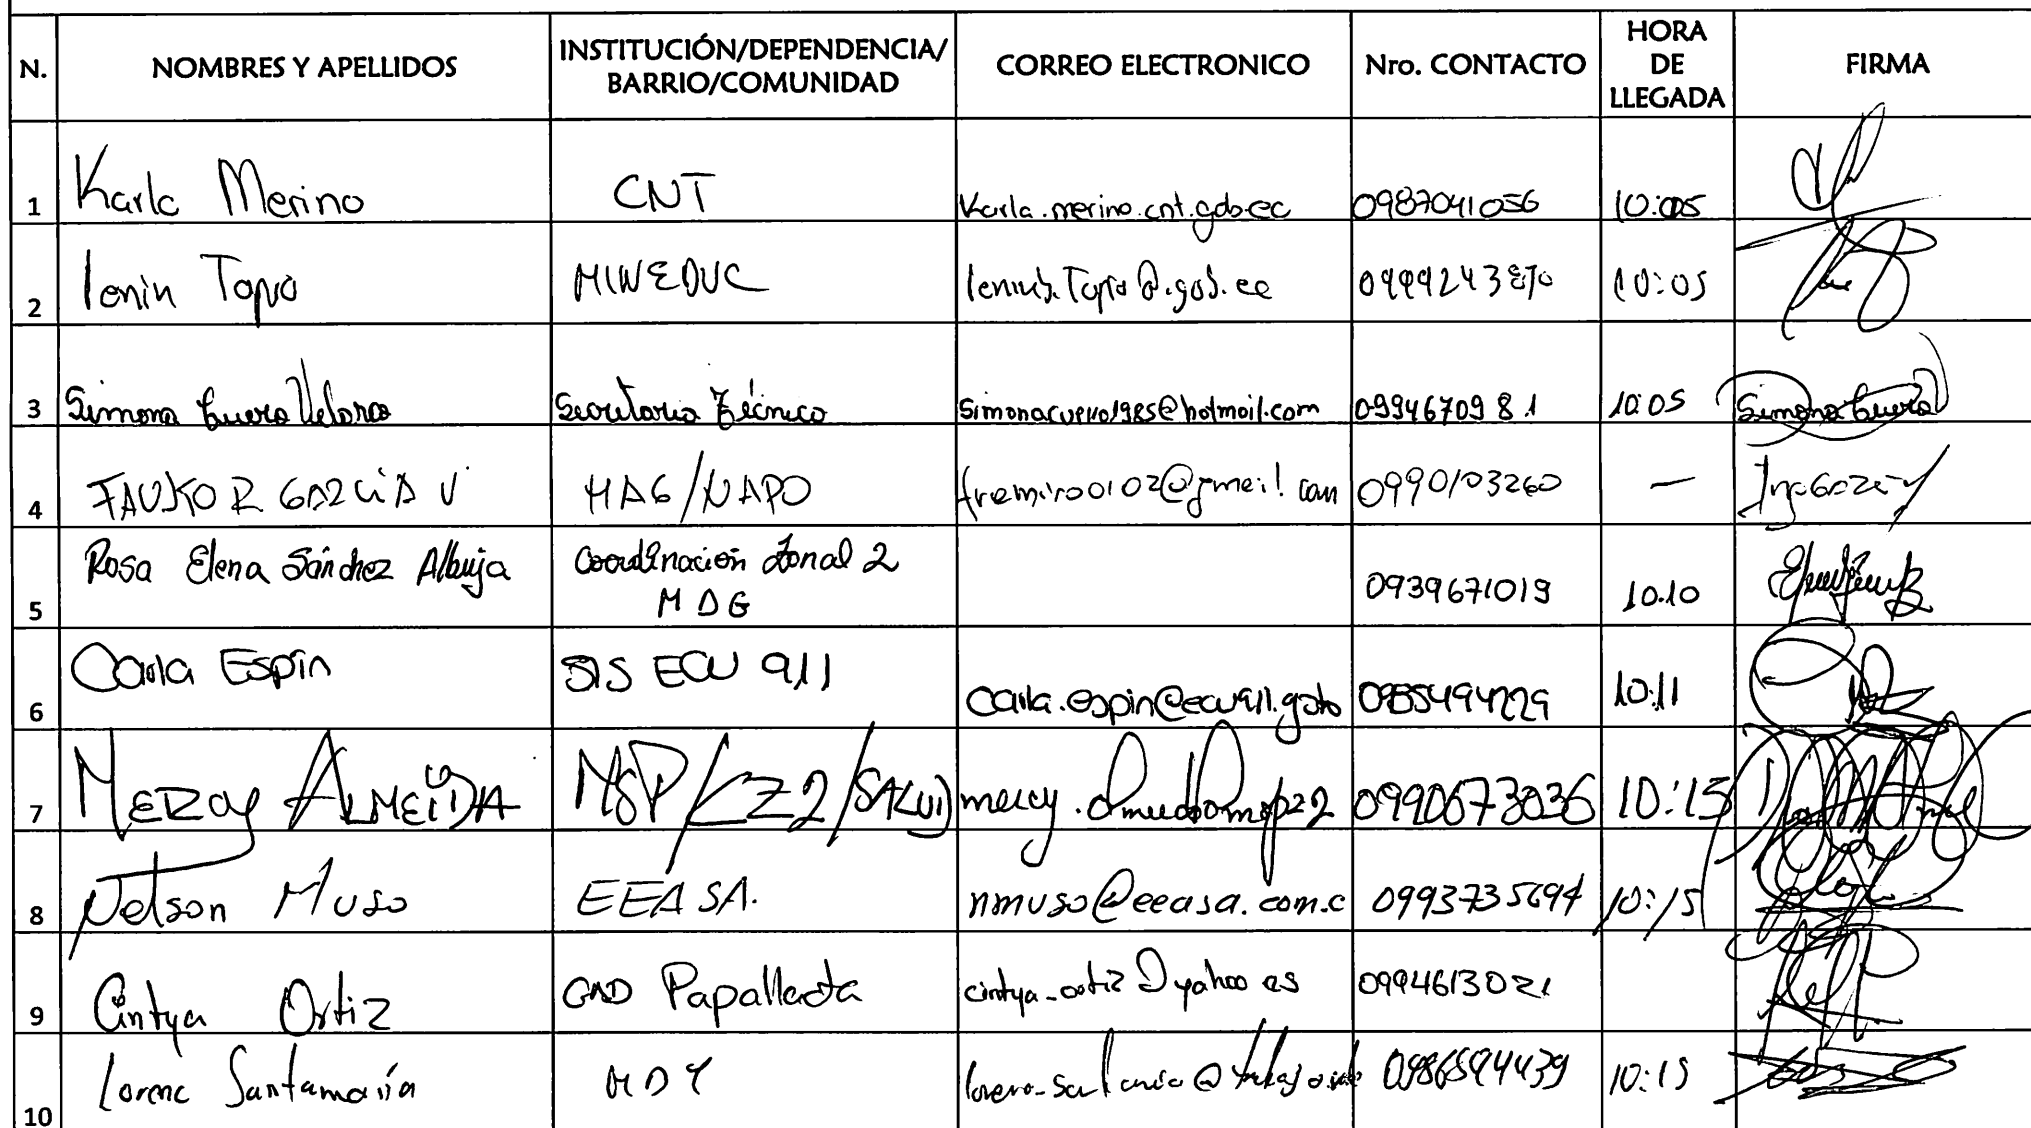 N. NOMBRES Y APELLIDOS INSTITUCIÓN/DEPENDENCIA/ BARRIO/COMUNIDAD CORREO ELECTRONICO Nro. CONTACTO HORA DE LLEGADA FIRMA
1 Karla Merino CNT Karla.merino.cnt.gob.ec 0987041056 10:05
2 lenin Tapia MINEDUC 10:05
3 Simona Cuero Velasco Secretaria Técnica Simonacuero1985@hotmail.com 099467098 1 10:05 Simona Cuero
4 FAUSTO R GARCIA V MAG/NAPO framiro0102@gmail.com 0990103260 —
5 Rosa Elena Sánchez Albuja Coordinación Zonal 2 MDG 0939671019 10:10
6 Carla Espín SIS ECU 911 Carla.espin@ecu911.gob 10:11
7 MERCY ALMEIDA MSP/CZ2/SALUD mercy. 0990673036 10:15
8 Nelson Muso EEASA. nmuso@eeasa.com.c 0993735694 10:15
9 Cintya Ortiz GAD Papallacta cintya-ortiz@yahoo es 0994613021
10 Lorena Santamaría 10:15